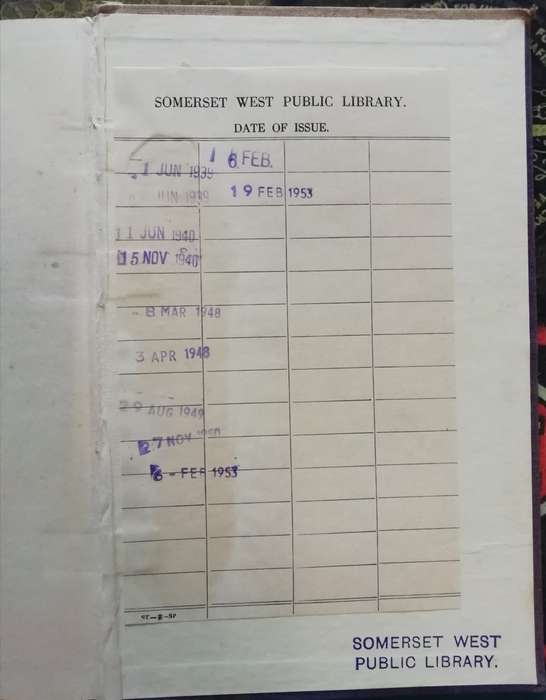 SOMERSET WEST PUBLIC LIBRARY.
DATE OF ISSUE.
1 JUN 1939
JUN 1939
11 JUN 1940
15 NOV 1940
- 8 MAR 1948
3 APR 1948
29 AUG 1949
27 NOV
6 - FEB 1953
16 FEB.
19 FEB 1953
SOMERSET WEST
PUBLIC LIBRARY.